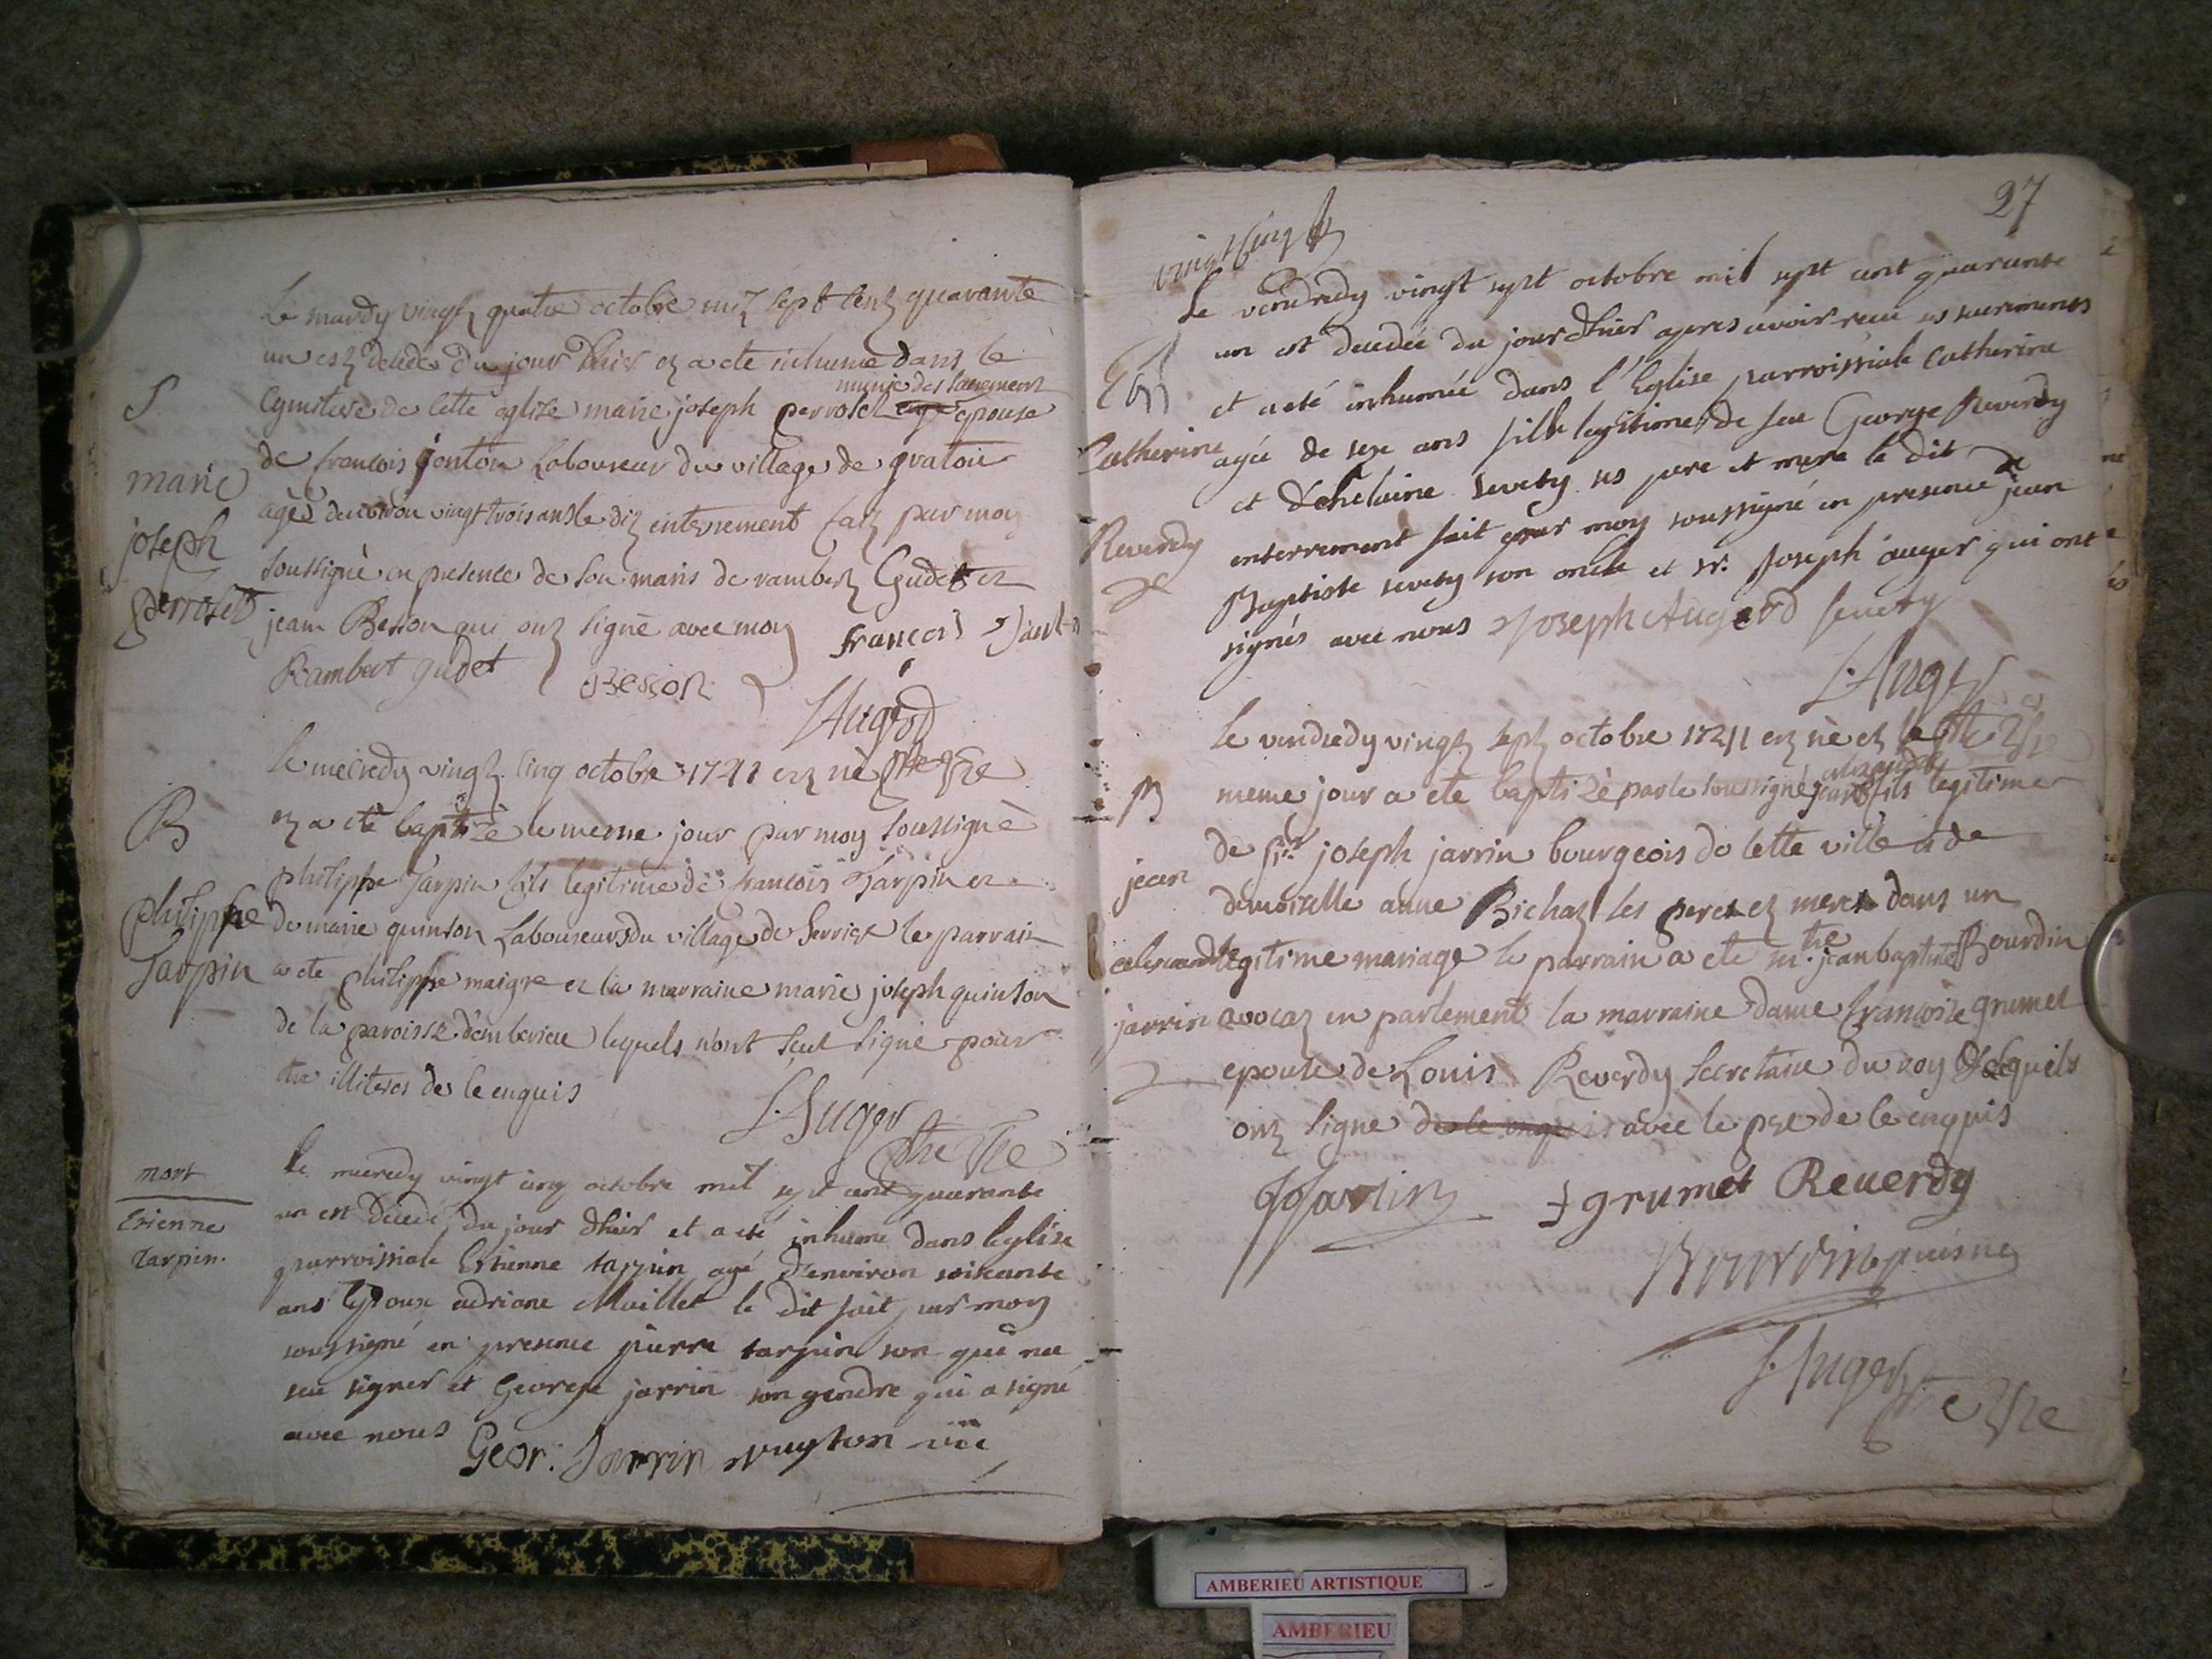 Le mardy vingt quatre octobre mil sept cent quarante
un est decedé du jour d'hier et a eté inhumé dans le
munie des sacrements
S
Cymitiere de cette eglise marie joseph perrolet epouse
de francois jenton Laboureur du village de gratou
marie
agée denviron vingt trois ans le dit enterrement fait par moy
joseph
soussigné en presence de son maris de rambert Gudet et
perrolet
jean Besson qui ont signé avec moy françois
Rambert gudet Besson
Augerd
le mecredy vingt cinq octobre 1741 est né
B
et a eté baptizé le meme jour par moy soussigné
philippe Tarpin fils legitime de francois Tarpin et
philippe
de marie quinson Laboureurs du village de le parrain
Tarpin
a ete philippe maigre et la marraine marie joseph quinson
de la paroisse d'amberieu lequels n'ont seut signé pour
etre illiteres de ce enquis
S. Auger
ptre vre
mort
le mecredy vingt cinq octobre mil sept cent quarante
Etienne
un est decedé du jour d'hier et a eté inhumé dans leglise
tarpin.
parroissiale Estienne tarpin agé d'environ soixante
ans epoux adriane Maillet le dit fait par moy
soussigné en presence pierre tarpin son qui na
seu signer et George jarrin son gendre qui a signé
avec nous Geor. Jarrin vic
27
vingt sept
le vendredy vingt sept octobre mil sept cent quarante
un est decedée du jour d'hier apres avoir receu ses sacrements
et a eté inhumée dans l'Eglise parroissiale Catherine
Catherine
agée de seze ans fille legitime de feu George Reverdy
et d'ehelaine sevety ses pere et mere le dit
Reverdy
enterrement fait par moy soussigné en presence jean
Baptiste sevety son oncle et Sr. Joseph auger qui ont
signés avec nous Joseph Augerd sevety
S. Auger
le vendredy vingt sept octobre 1741 est né et le
alexandre
B
meme jour a ete baptizé par le soussigné jean fils legitime
de Sr. joseph jarrin bourgeois de cette ville et de
jean
demoiselle anne Bichat ses peres et meres dans un
alexandre
legitime mariage le parrain a ete mtre. jean baptiste Bourdin
jarrin
avocat en parlement la marraine dame francoise grumet
epouse de Louis Reverdy secretaire du roy lesquels
ont signé de ce enquis avec le pere de ce enquis
Jarrin f grumet Reuerdy
Bourdin puisné
S. Auger
ptre vre
AMBERIEU ARTISTIQUE
AMBERIEU